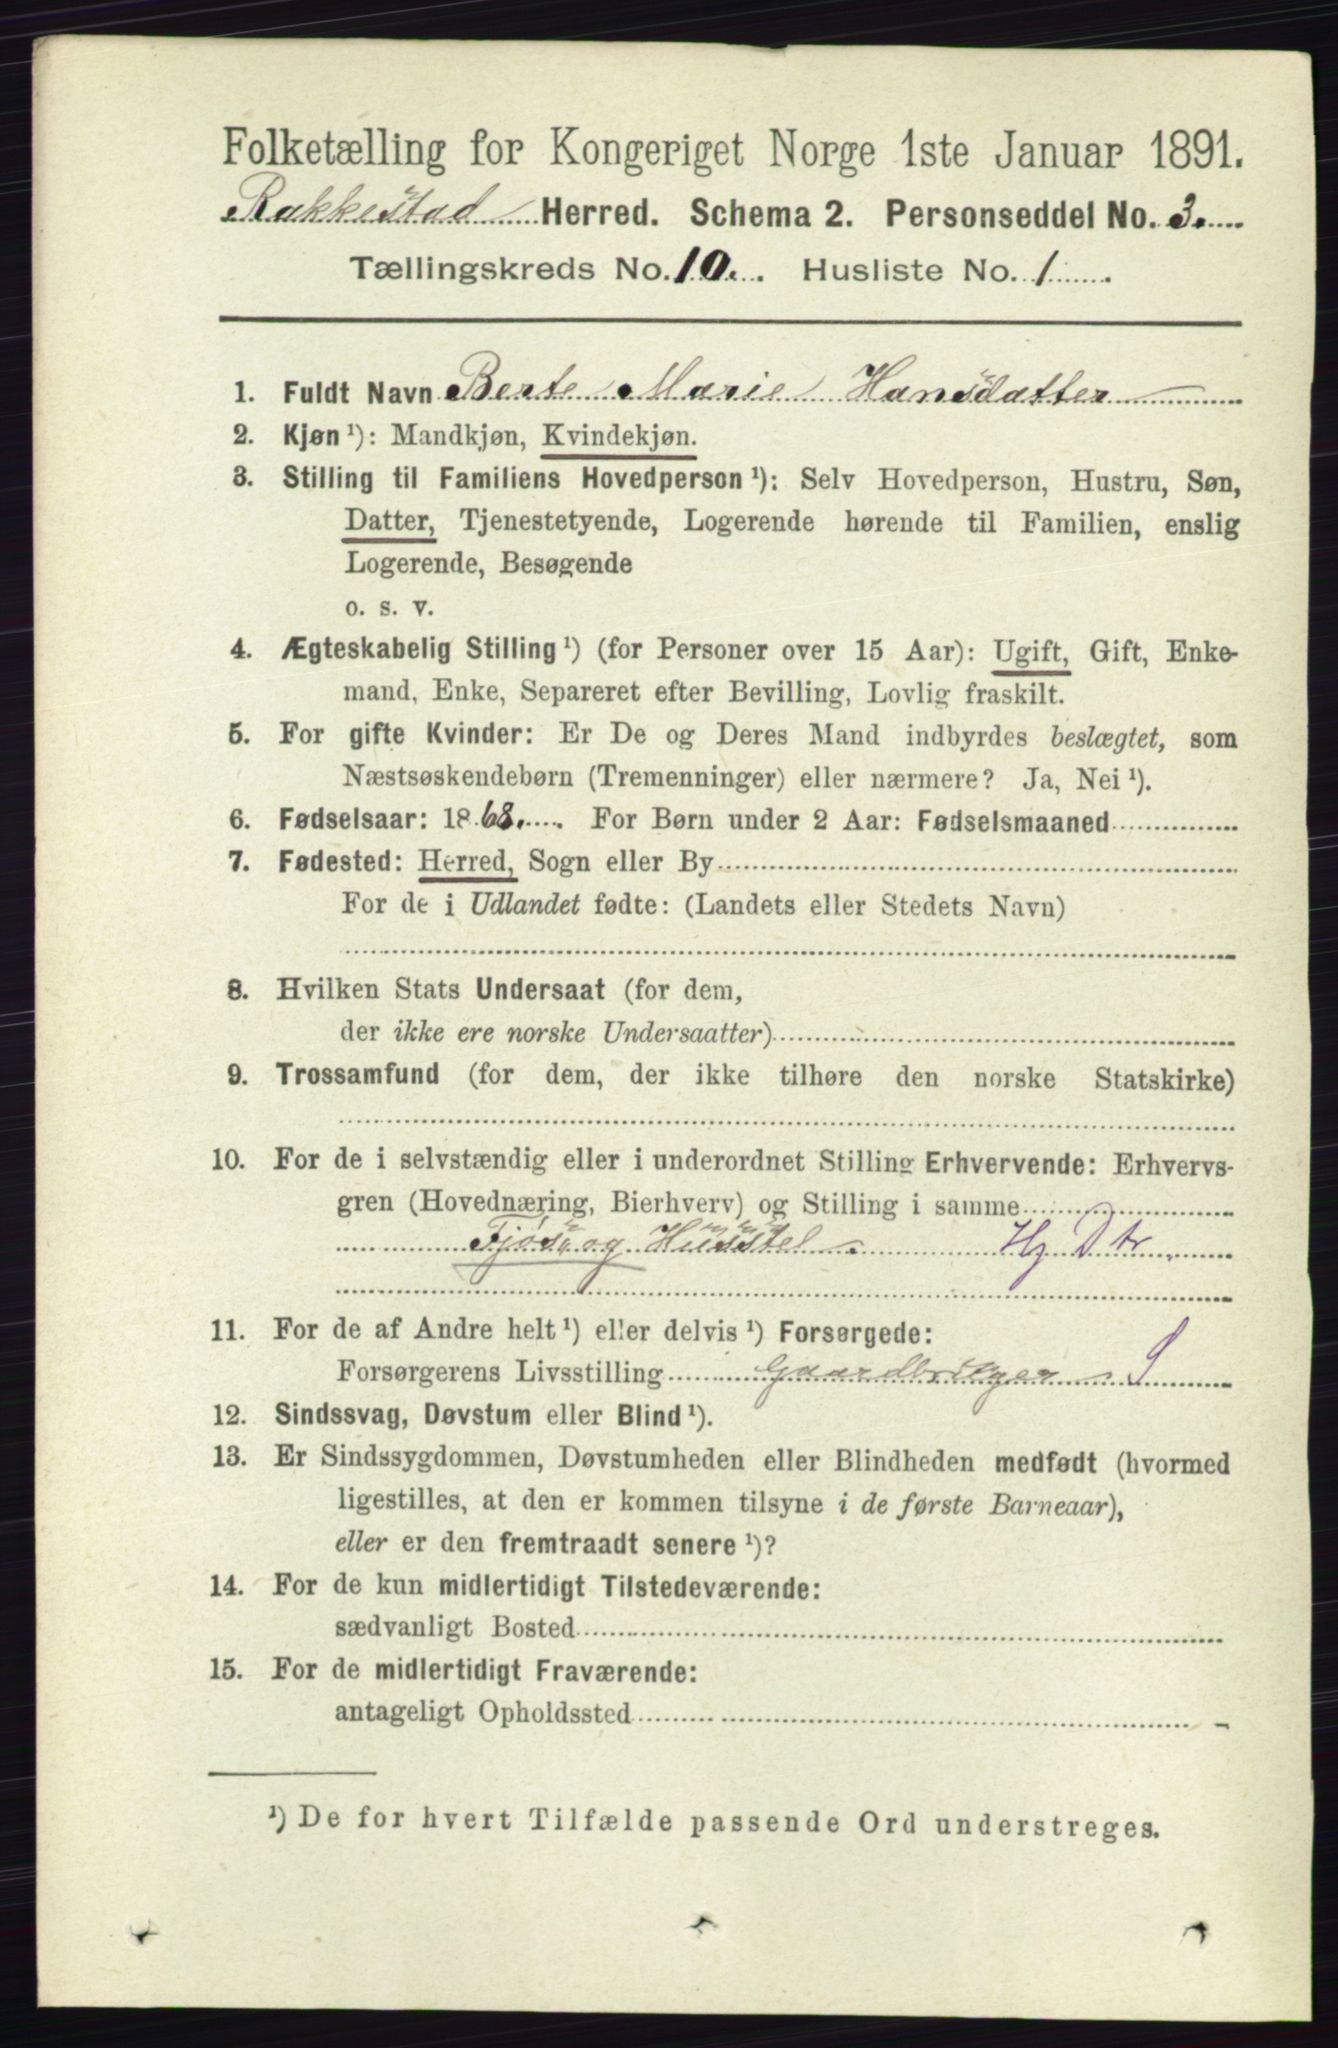 Folketælling for Kongeriget Norge 1ste Januar 1891.
Rakkestad Herred. Schema 2. Personseddel No. 3.
Tællingskreds No. 10. Husliste No. 1
1. Fuldt Navn Berte Marie Hansdatter
2. Kjøn ¹): Mandkjøn, Kvindekjøn.
3. Stilling til Familiens Hovedperson ¹): Selv Hovedperson, Hustru, Søn,
Datter, Tjenestetyende, Logerende hørende til Familien, enslig
Logerende, Besøgende
o. s. v.
4. Ægteskabelig Stilling ¹) (for Personer over 15 Aar): Ugift, Gift, Enke-
mand, Enke, Separeret efter Bevilling, Lovlig fraskilt.
5. For gifte Kvinder: Er De og Deres Mand indbyrdes beslægtet, som
Næstsøskendebørn (Tremenninger) eller nærmere? Ja, Nei ¹).
6. Fødselsaar: 1868. For Børn under 2 Aar: Fødselsmaaned
7. Fødested: Herred, Sogn eller By
For de i Udlandet fødte: (Landets eller Stedets Navn)
8. Hvilken Stats Undersaat (for dem,
der ikke ere norske Undersaatter)
9. Trossamfund (for dem, der ikke tilhøre den norske Statskirke)
10. For de i selvstændig eller i underordnet Stilling Erhvervende: Erhvervs-
gren (Hovednæring, Bierhverv) og Stilling i samme
Fjøs- og Husstel. Hz Dtr.
11. For de af Andre helt ¹) eller delvis ¹) Forsørgede:
Forsørgerens Livsstilling Gaardbruger S
12. Sindssvag, Døvstum eller Blind ¹).
13. Er Sindssygdommen, Døvstumheden eller Blindheden medfødt (hvormed
ligestilles, at den er kommen tilsyne i de første Barneaar),
eller er den fremtraadt senere ¹)?
14. For de kun midlertidigt Tilstedeværende:
sædvanligt Bosted
15. For de midlertidigt Fraværende:
antageligt Opholdssted
¹) De for hvert Tilfælde passende Ord understreges.